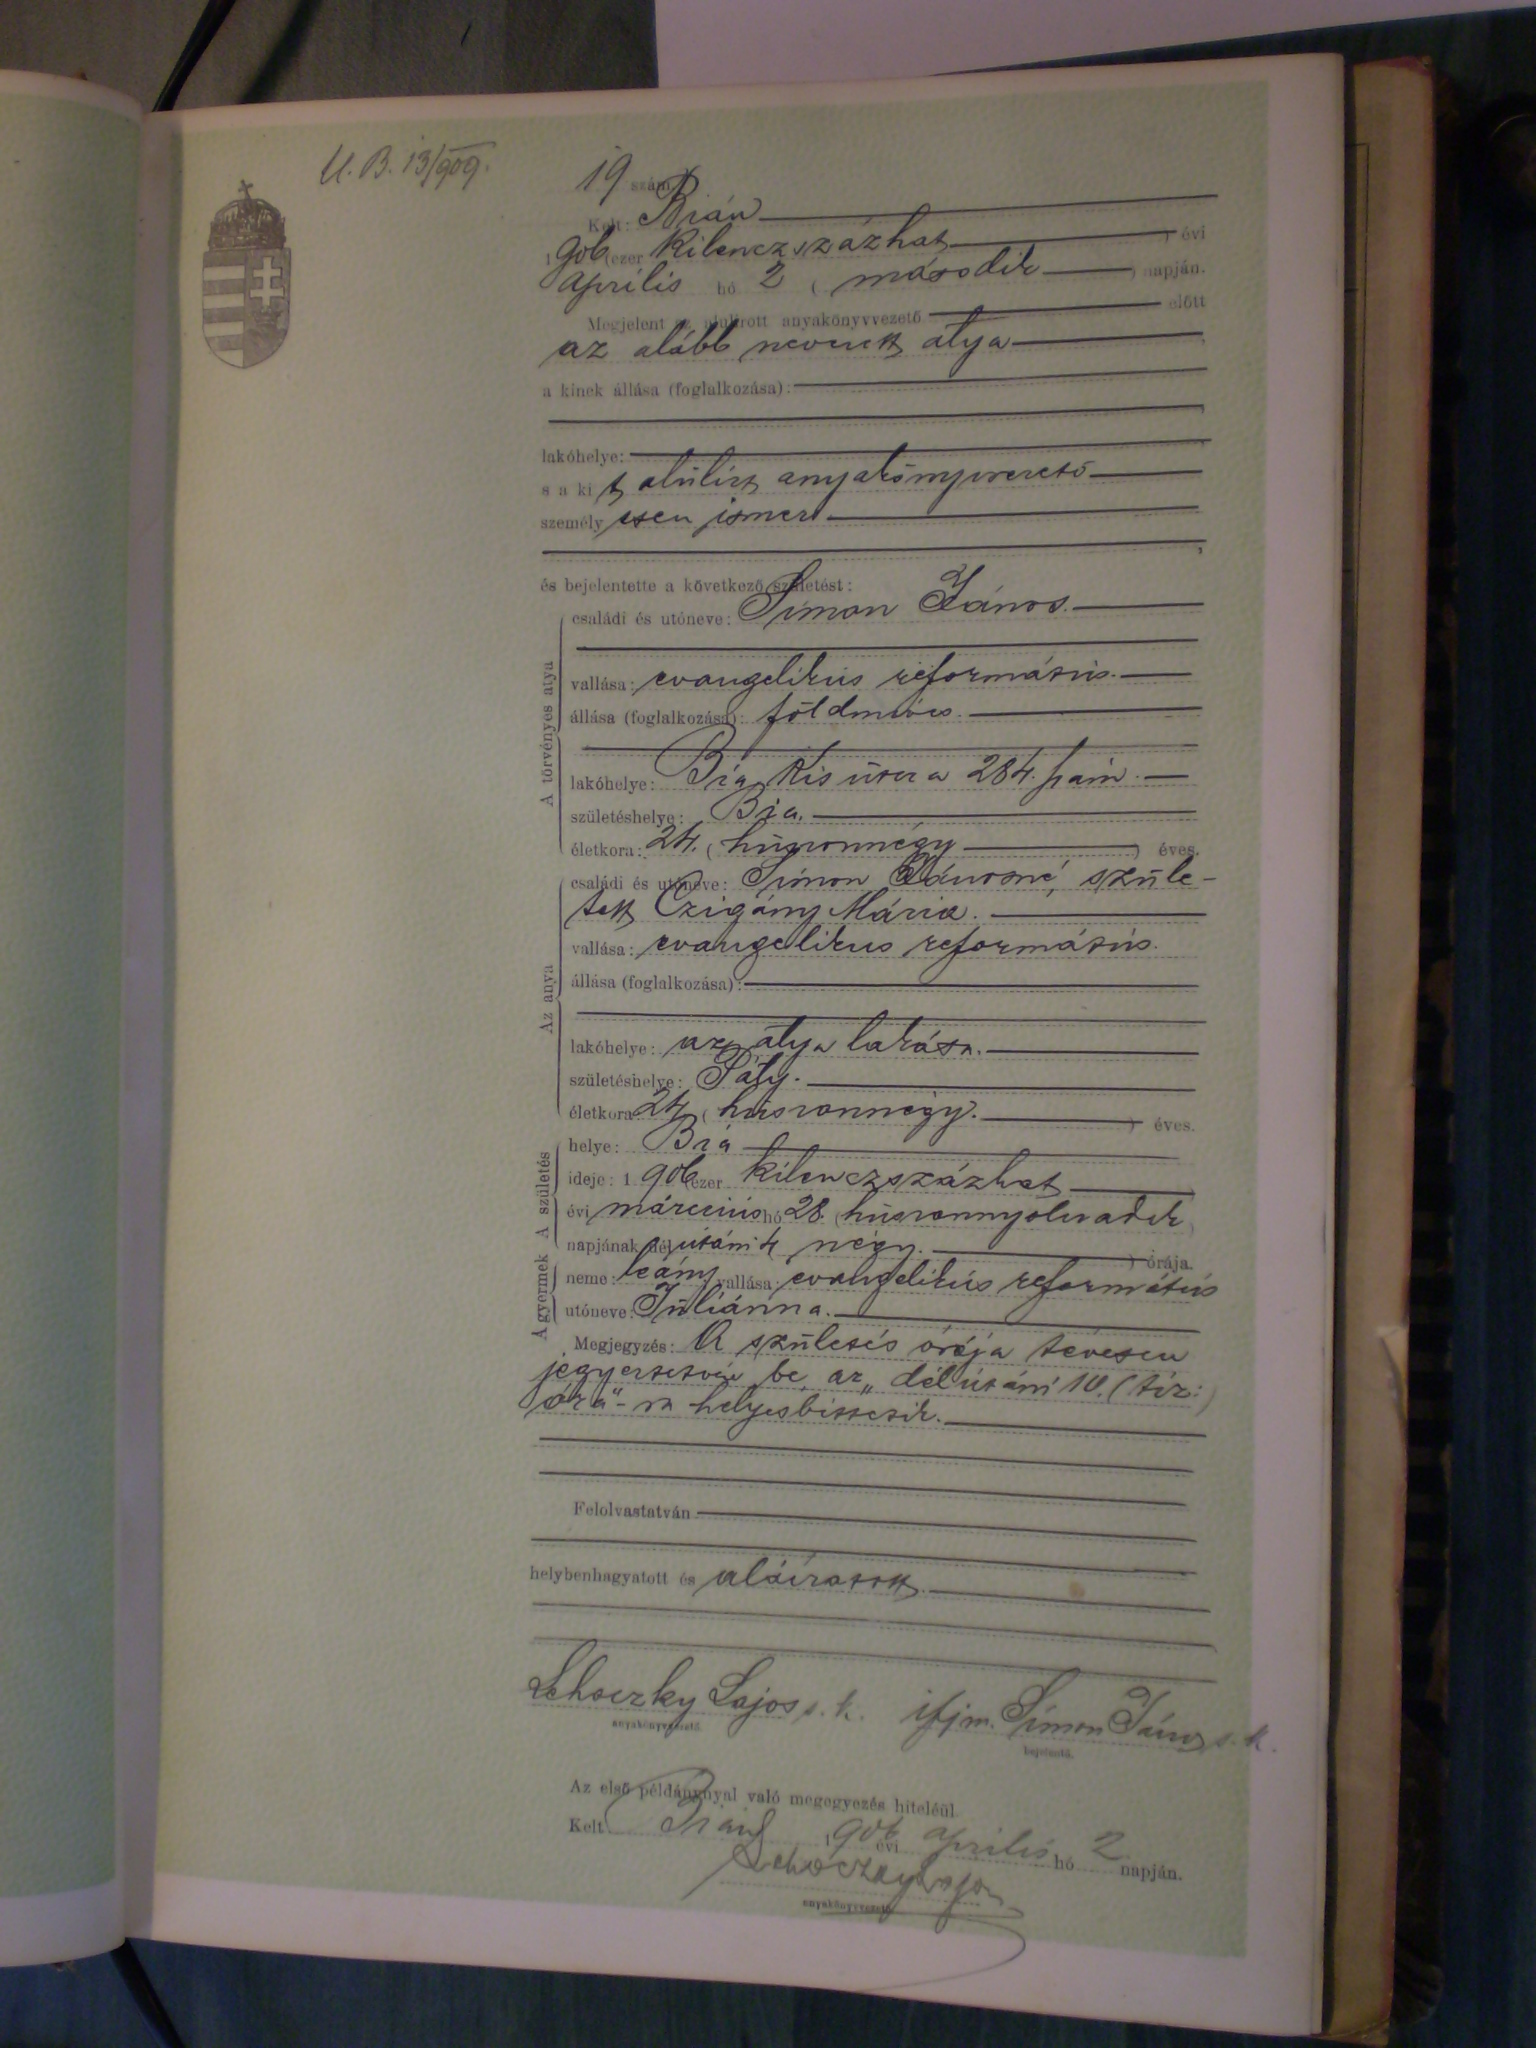 U. B. 13/909.
19 szám
Kelt: Bián
1906 (ezer kilenczszázhat ) évi
április hó 2 ( második ) napján.
Megjelent az alulirott anyakönyvvezető előtt
az alább nevezett atya
a kinek állása (foglalkozása):
lakóhelye:
s a ki t alulirt anyakönyvvezető
személy esen ismer
és bejelentette a következő születést:
A törvényes atya
családi és utóneve: Simon János.
vallása: evangelikus református.
állása (foglalkozása): földmives.
lakóhelye: Bia Kis utcza 284. szám.
születéshelye: Bia.
életkora: 24. ( huszonnégy ) éves.
Az anya
családi és utóneve: Simon Jánosné, szüle-
tett Czigány Mária.
vallása: evangelikus református.
állása (foglalkozása):
lakóhelye: az atya lakása.
születéshelye: Páty.
életkora: 24 ( huszonnégy. ) éves.
A születés
helye: Bia
ideje: 1 906 ezer kilenczszázhat
évi márczius hó 28. ( huszonnyolczadik )
napjának dél utáni 4 négy. ) órája.
A gyermek
neme: leány vallása: evangelikus református
utóneve: Juliánna.
Megjegyzés: A születés órája tévesen
jegyeztetvén be, az „délutáni 10. (tiz:)
óra"-ra helyesbittetik.
Felolvastatván
helybenhagyatott és aláiratott.
Lehoczky Lajos s. k. ifjm. Simon János s. k.
anyakönyvvezető. bejelentő.
Az első példánynyal való megegyezés hiteléül
Kelt Bián 1906 évi április hó 2 napján.
Lehoczky Lajos
anyakönyvvezető.